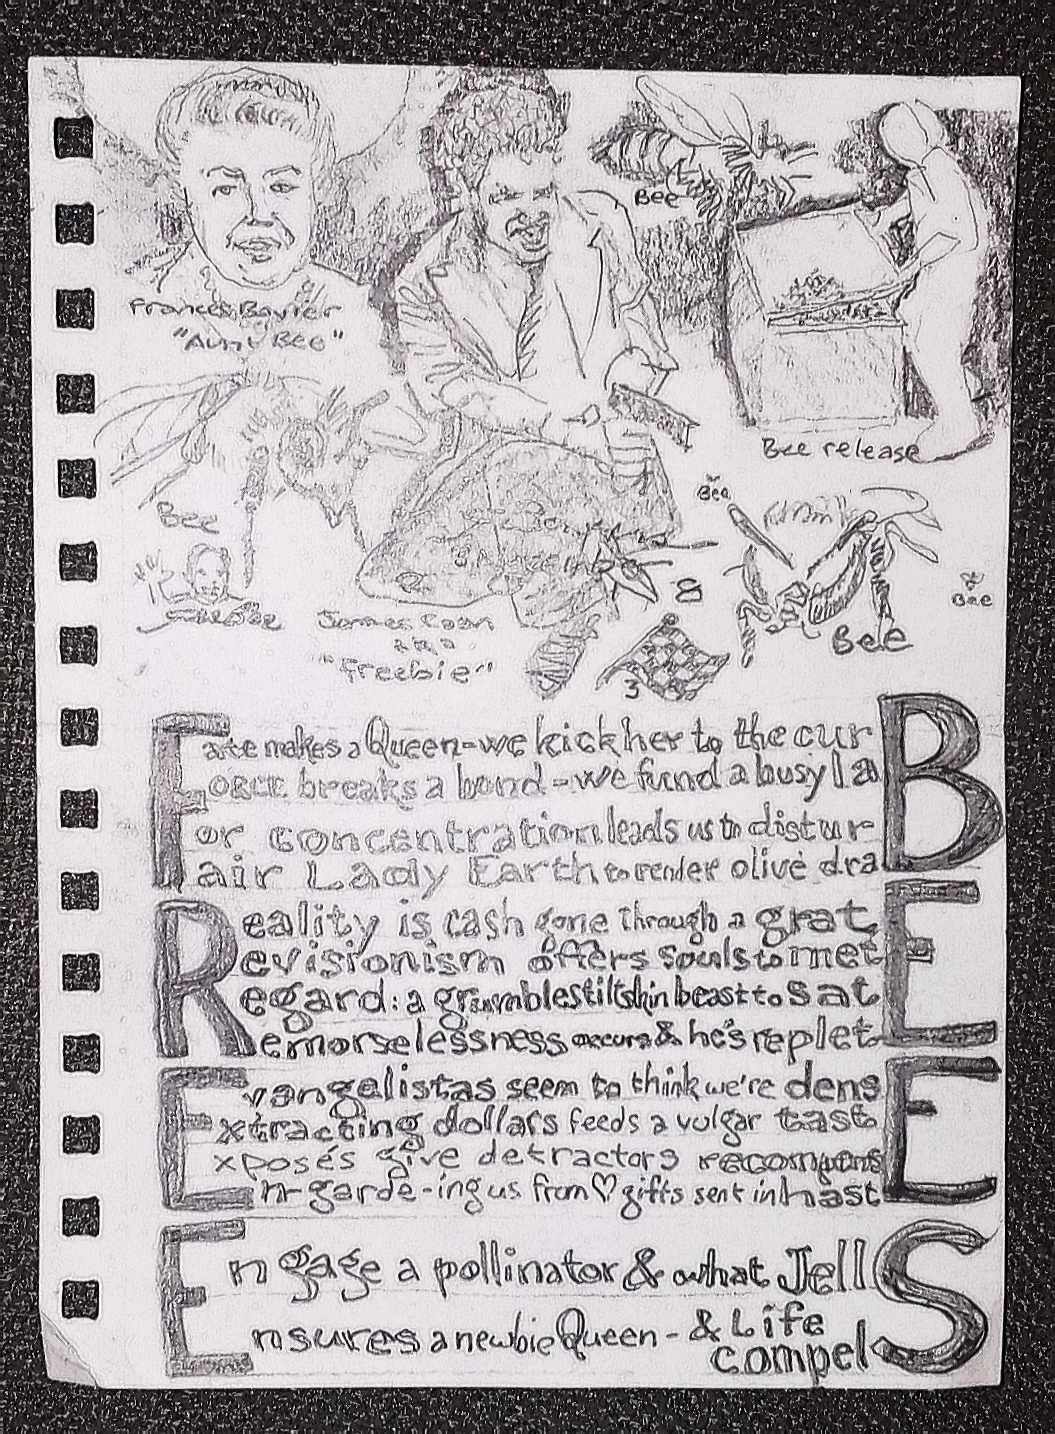 Bee
Frances Bavier
"Aunt Bee"
Bee release
Bee
Bee
Bee
Bee
James Caan
"Freebie"
&
3
Fate makes a Queen-we kick her to the curB
Force breaks a bond-we fund a busy laB
For concentration leads us to disturB
Fair Lady Earth to render olive draB
Reality is cash gone through a gratE
Revisionism offers souls to metE
Regard: a grumblestiltskin beast to satE
Remorselessness occurs & he's repletE
Evangelistas seem to think we're densE
Extracting dollars feeds a vulgar tastE
Exposés give detractors recompensE
En-garde-ing us from ♡ gifts sent in hastE
Engage a pollinator & what JellS
Ensures a newbie Queen- & Life
compelS